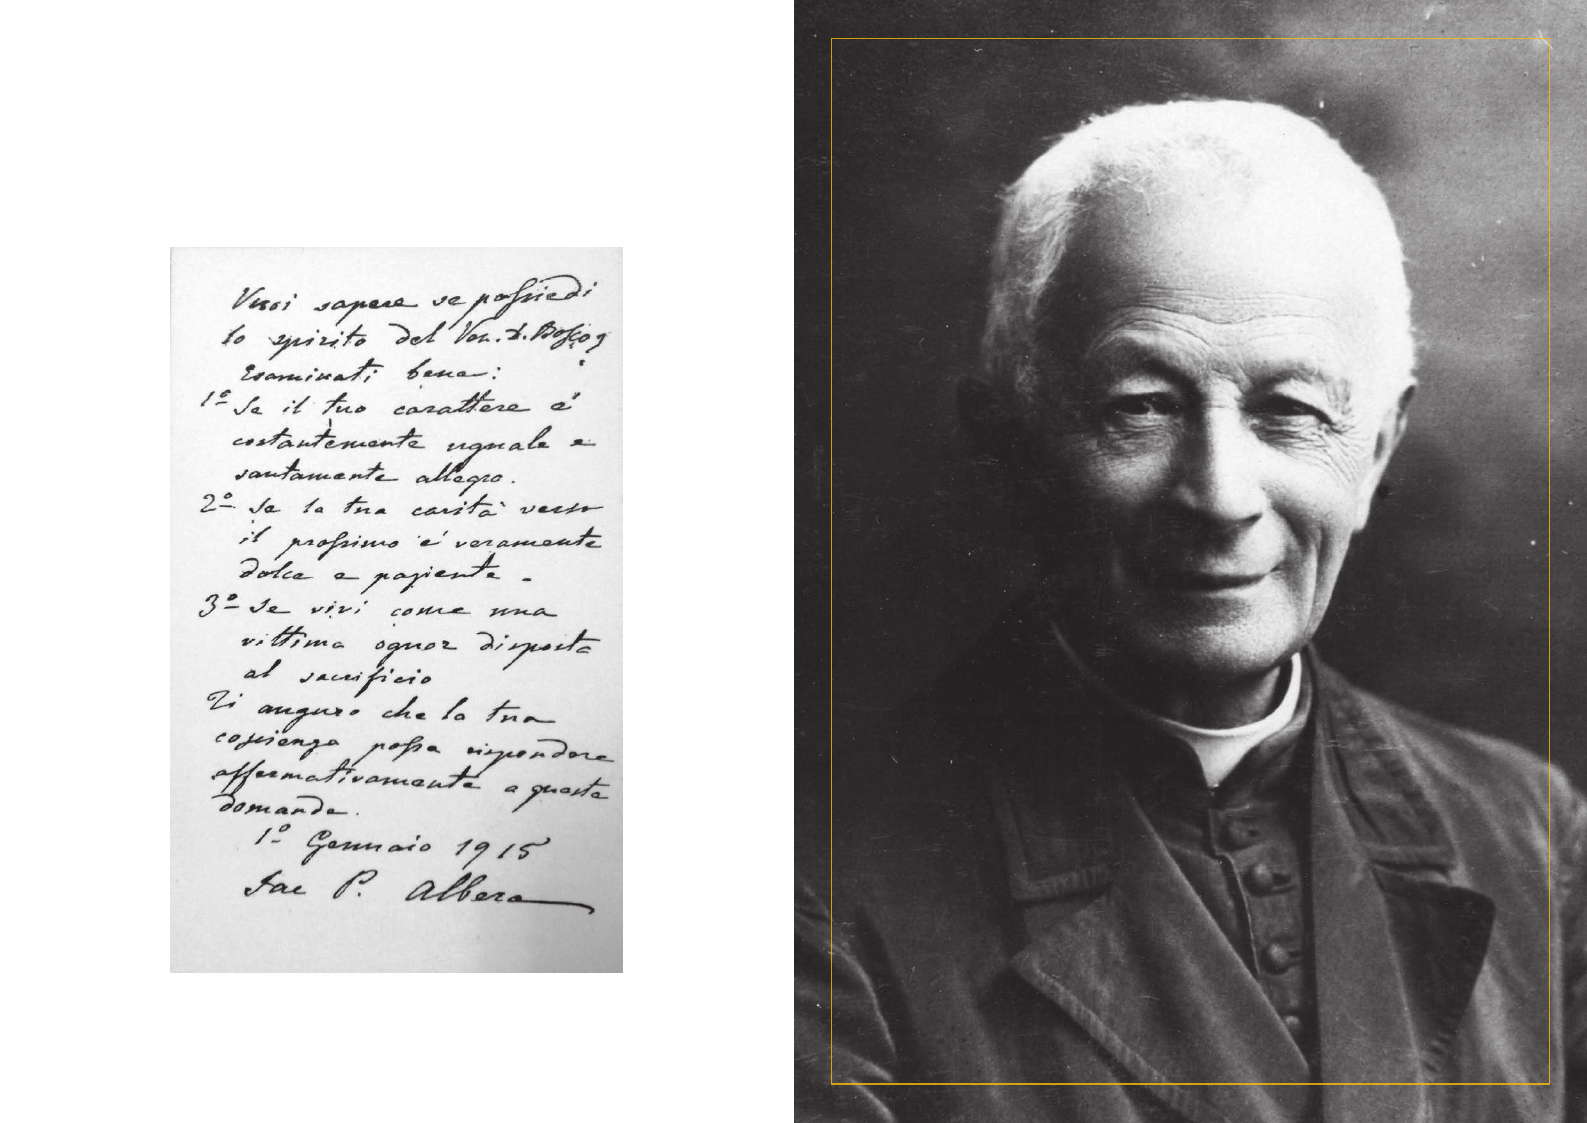 Vuoi sapere se possiedi
lo spirito del Ven. D. Bosco?
Esaminati bene:
1º Se il tuo carattere é
costantemente uguale e
santamente allegro.
2º Se la tua carità verso
il prossimo é veramente
dolce e paziente.
3º Se vivi come una
vittima ognor disposta
al sacrificio
Ti auguro che la tua
coscienza possa rispondere
affermativamente a queste
domande.
1º Gennaio 1915
Sac P. Albera